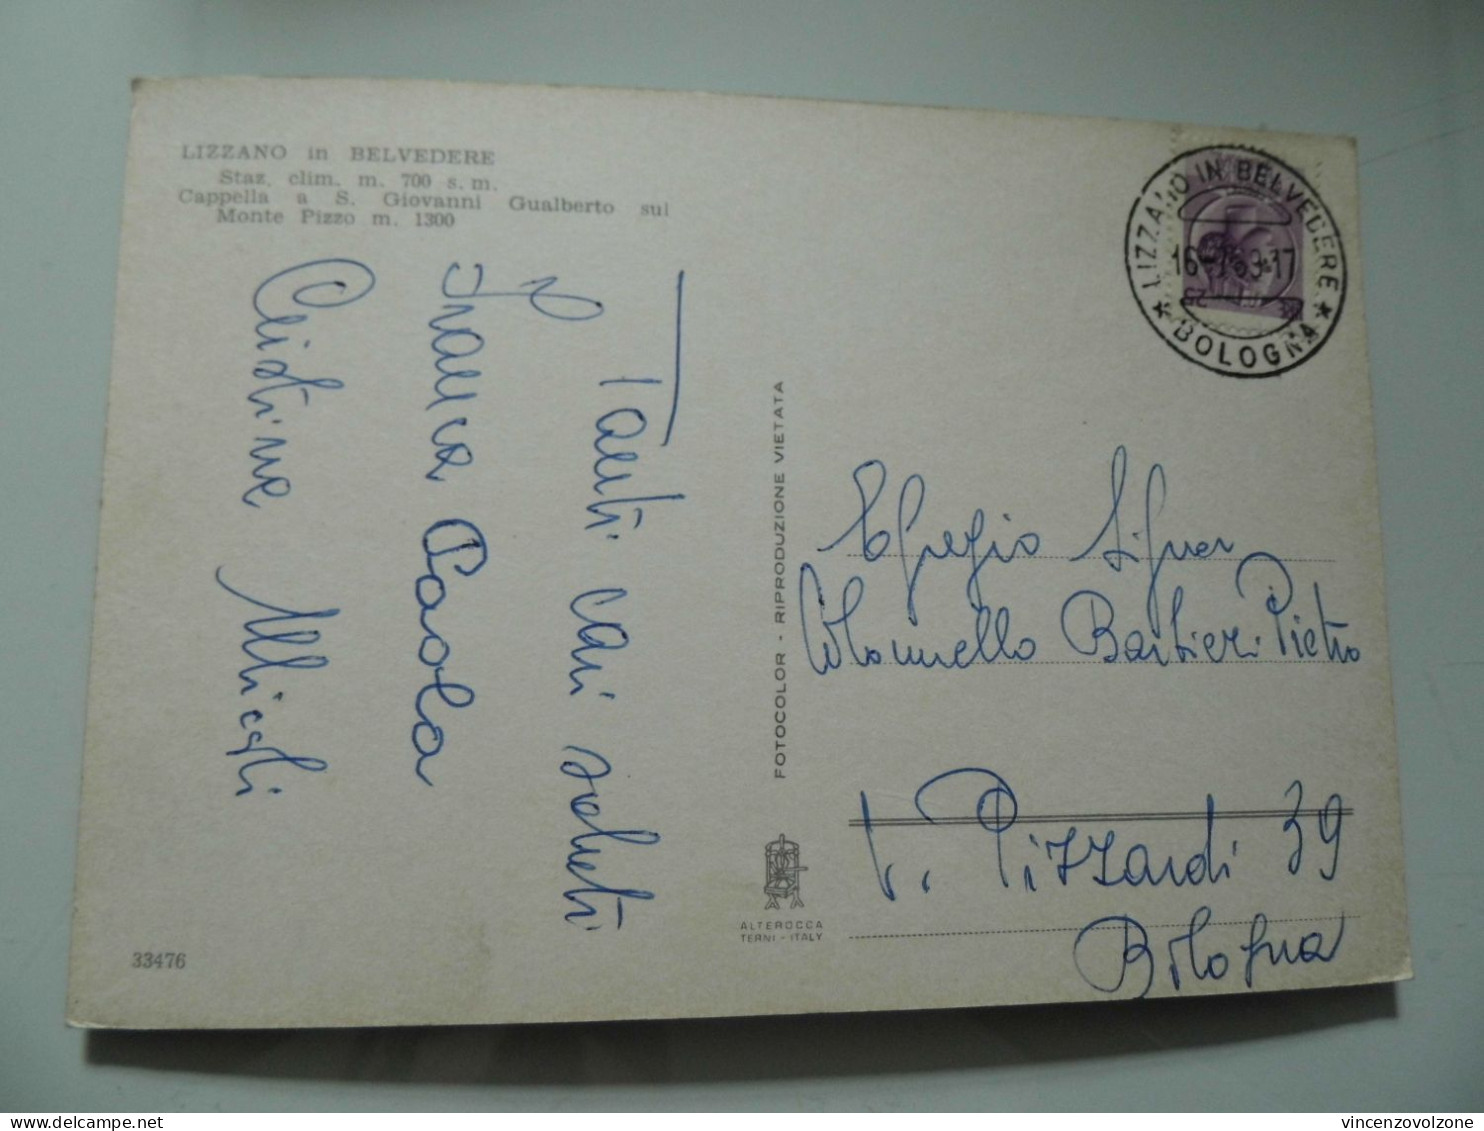 LIZZANO in BELVEDERE
Staz. clim. m. 700 s. m.
Cappella a S. Giovanni Gualberto sul
Monte Pizzo m. 1300
Tanti cari saluti
Franca Paola
Cristina Micali
33476
FOTOCOLOR - RIPRODUZIONE VIETATA
ALTEROCCA
TERNI - ITALY
LIZZANO IN BELVEDERE
* BOLOGNA *
Egregio Signor
Colonnello Barbieri Pietro
V. Pizzardi 39
Bologna
vincenzovolzone